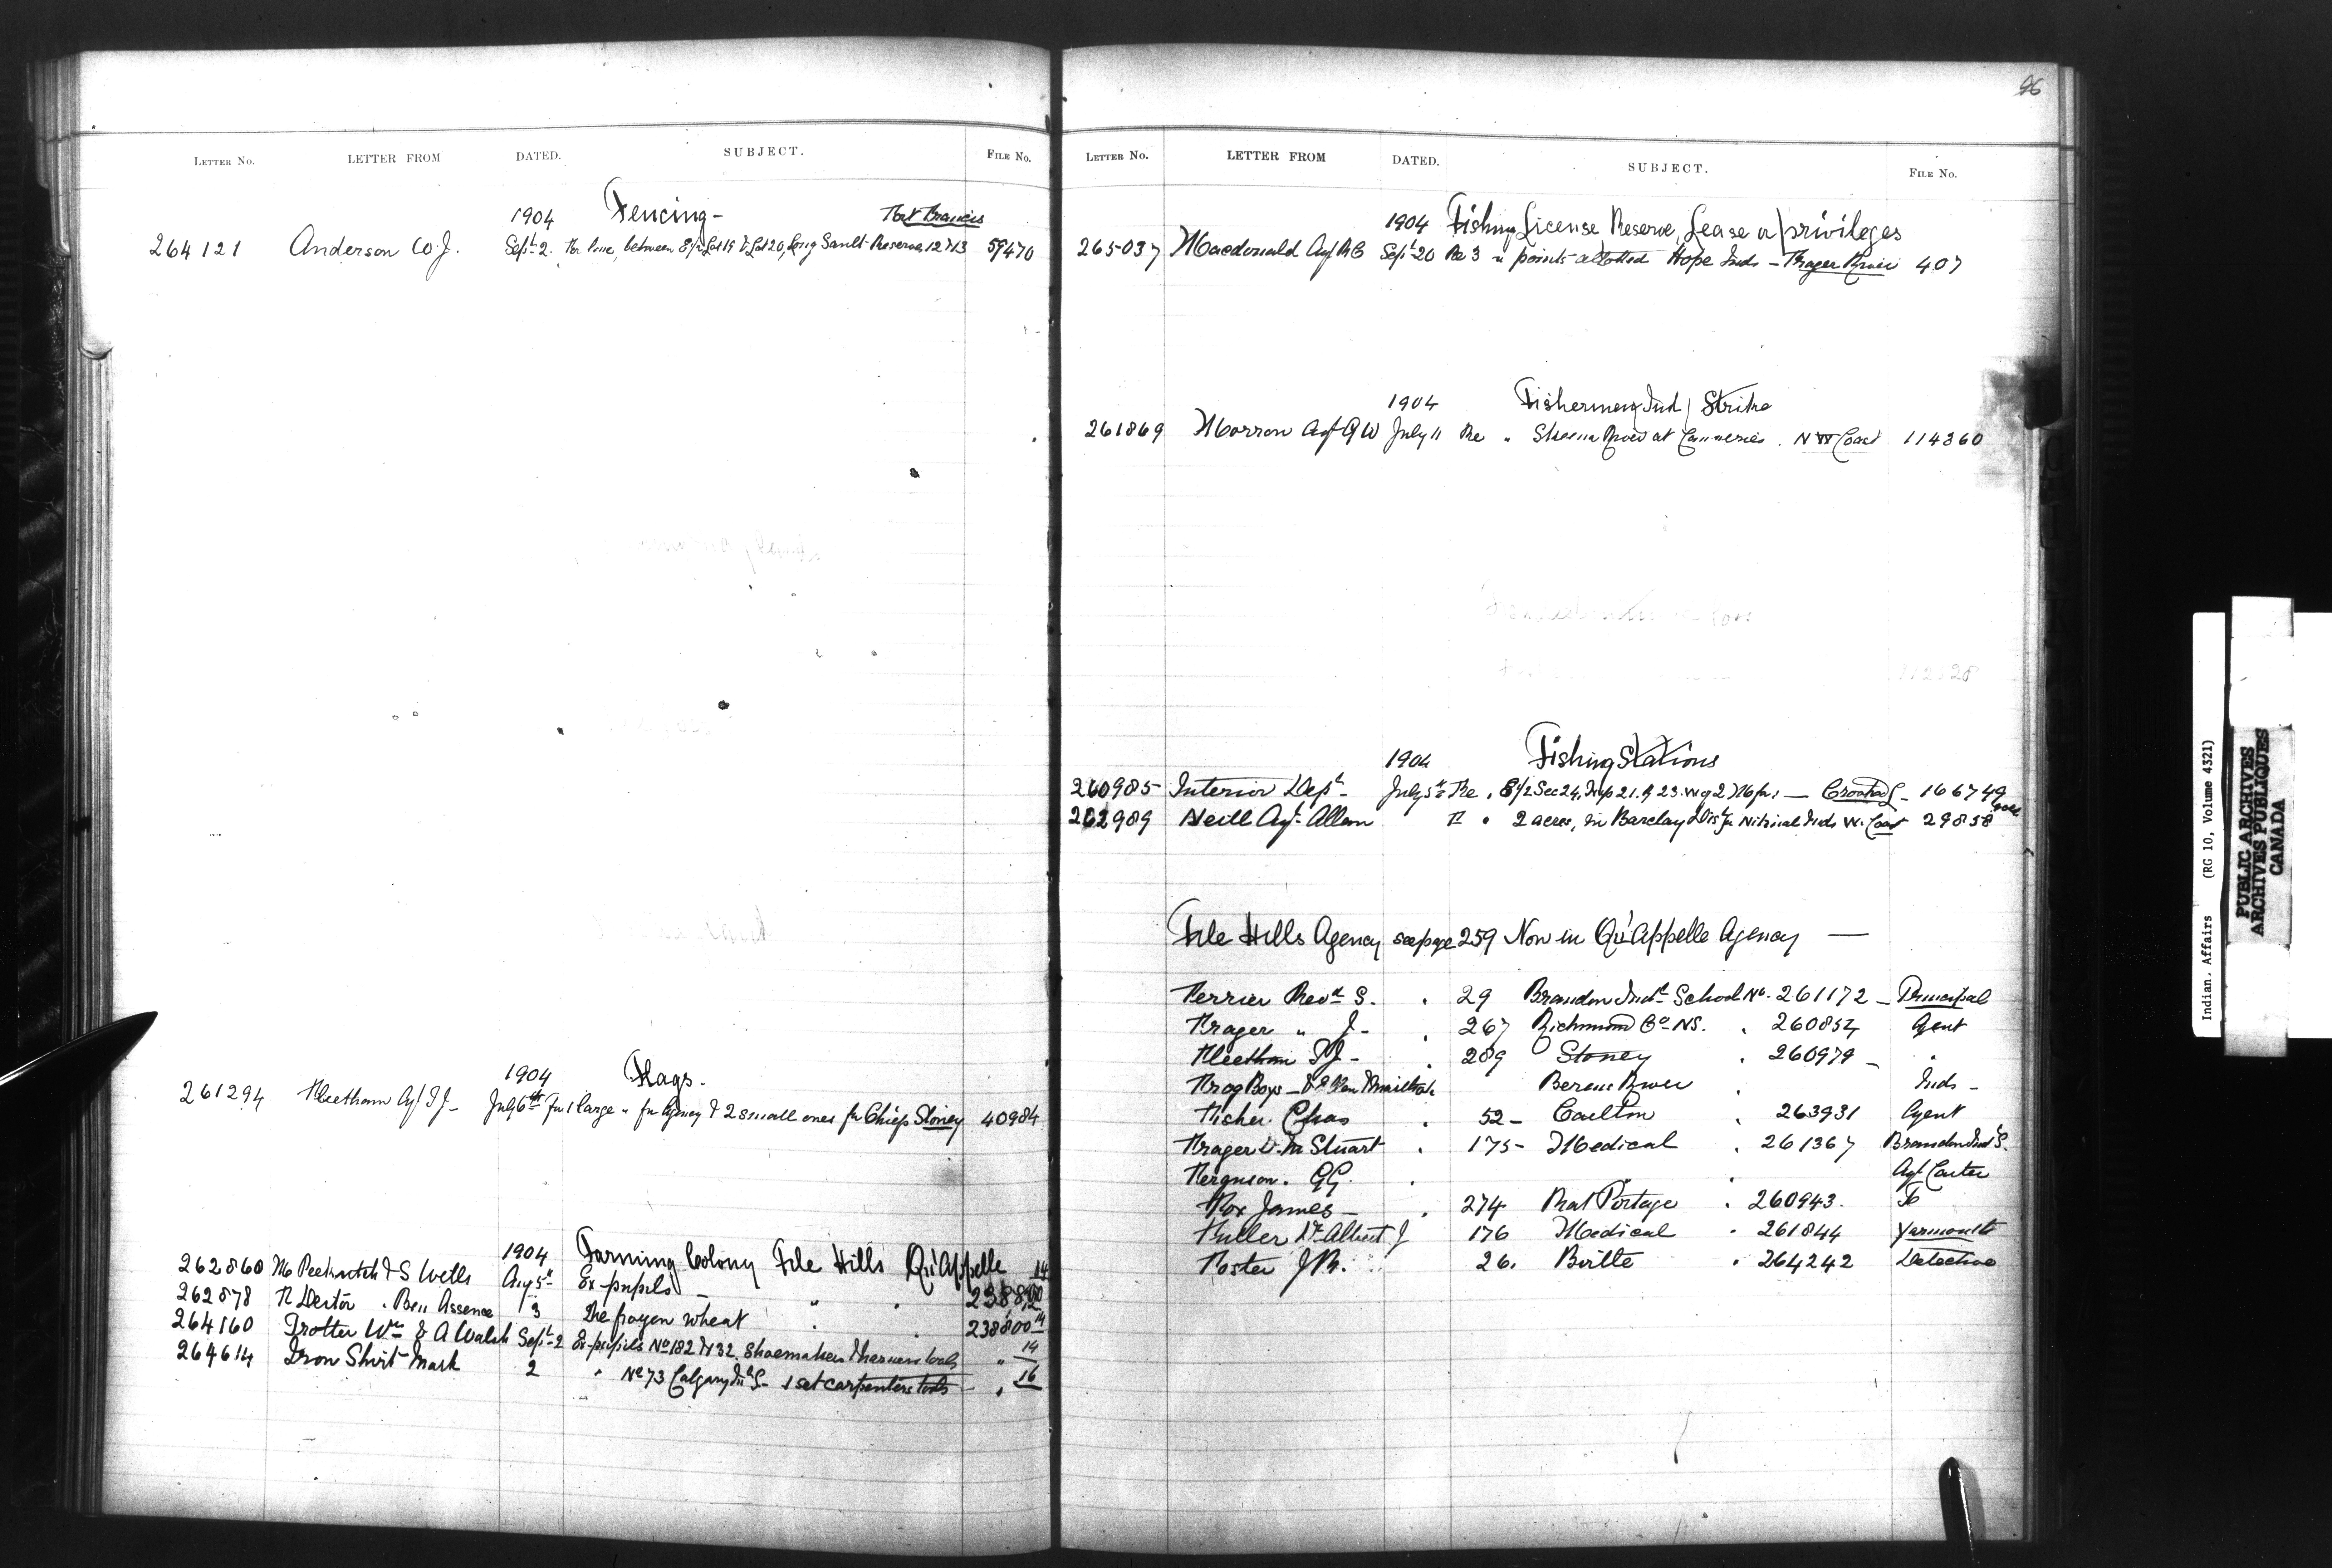 LETTER NO. LETTER FROM DATED. SUBJECT. FILE No.
1904 Fencing - Fort Francis
264121 Anderson W.J. Sept 2. For line, between E/2 Lot 19 & Lot 20, Long Sault Reserves 12 & 13 59470
1904 Flags.
261294 Fleetham Agt T J - July 6th For 1 large " for Agency & 2 small ones for Chiefs Stoney 40984
1904 Farming Colony File Hills Qu'Appelle
262860 M Peekutch & S Wells Aug 5th Ex-pupils - " " 238800 14
262878 F Dieter . Ben Assence 3 Re frozen wheat " " 238800 14
264160 Trotter Wm & A Walsh Sept 2 Ex-pupils No 182 & 132. Shoemakers & harness tools " 14
264614 Iron Shirt Mark 2 " No 73 Calgary In S - 1 set carpenters tools - " 16
96
LETTER NO. LETTER FROM DATED. SUBJECT. FILE No.
1904 Fishing License Reserve, Lease or privileges
265037 Macdonald Agt R C Sept 20 Re 3 " points allotted Hope Inds - Frazer River 407
1904 Fishermen Ind Strike
261869 Morrow Agt G W July 11 Re " Skeena River at Canneries . N W Coast 114360
1904 Fishing Stations
260985 Interior Dept - July 5th Re . E 1/2 Sec 24, Twp 21. R 23. W of 2nd — Crooked L - 166749
262989 Neill Agt Allan F " 2 acres, in Barclay Dist for Nitinat Inds W. Coast 29858
File Hills Agency see page 259 Now in Qu'Appelle Agency —
Ferrier Revd S. . 29 Brandon Indl School No. 261172 - Principal
Frazer " J - . 267 Richmond Co NS. . 260854 Agent
Fleetham T J - . 289 Stoney . 260979 - "
Frog Boys - Berens River . Inds -
Fisher Chas . 52 - Carlton . 263931 Agent
Frazer Dr. M Stuart . 175 - Medical . 261367 Brandon Ind S.
Ferguson. G G. . . Agt Carter
Fox James - . 274 Rat Portage . 260943. Jo
Fuller Dr Albert J 176 Medical . 261844 Yarmouth
Foster J R. 26. Birtle . 264242 Detective
Indian Affairs (RG 10, Volume 4321)
PUBLIC ARCHIVES
ARCHIVES PUBLIQUES
CANADA